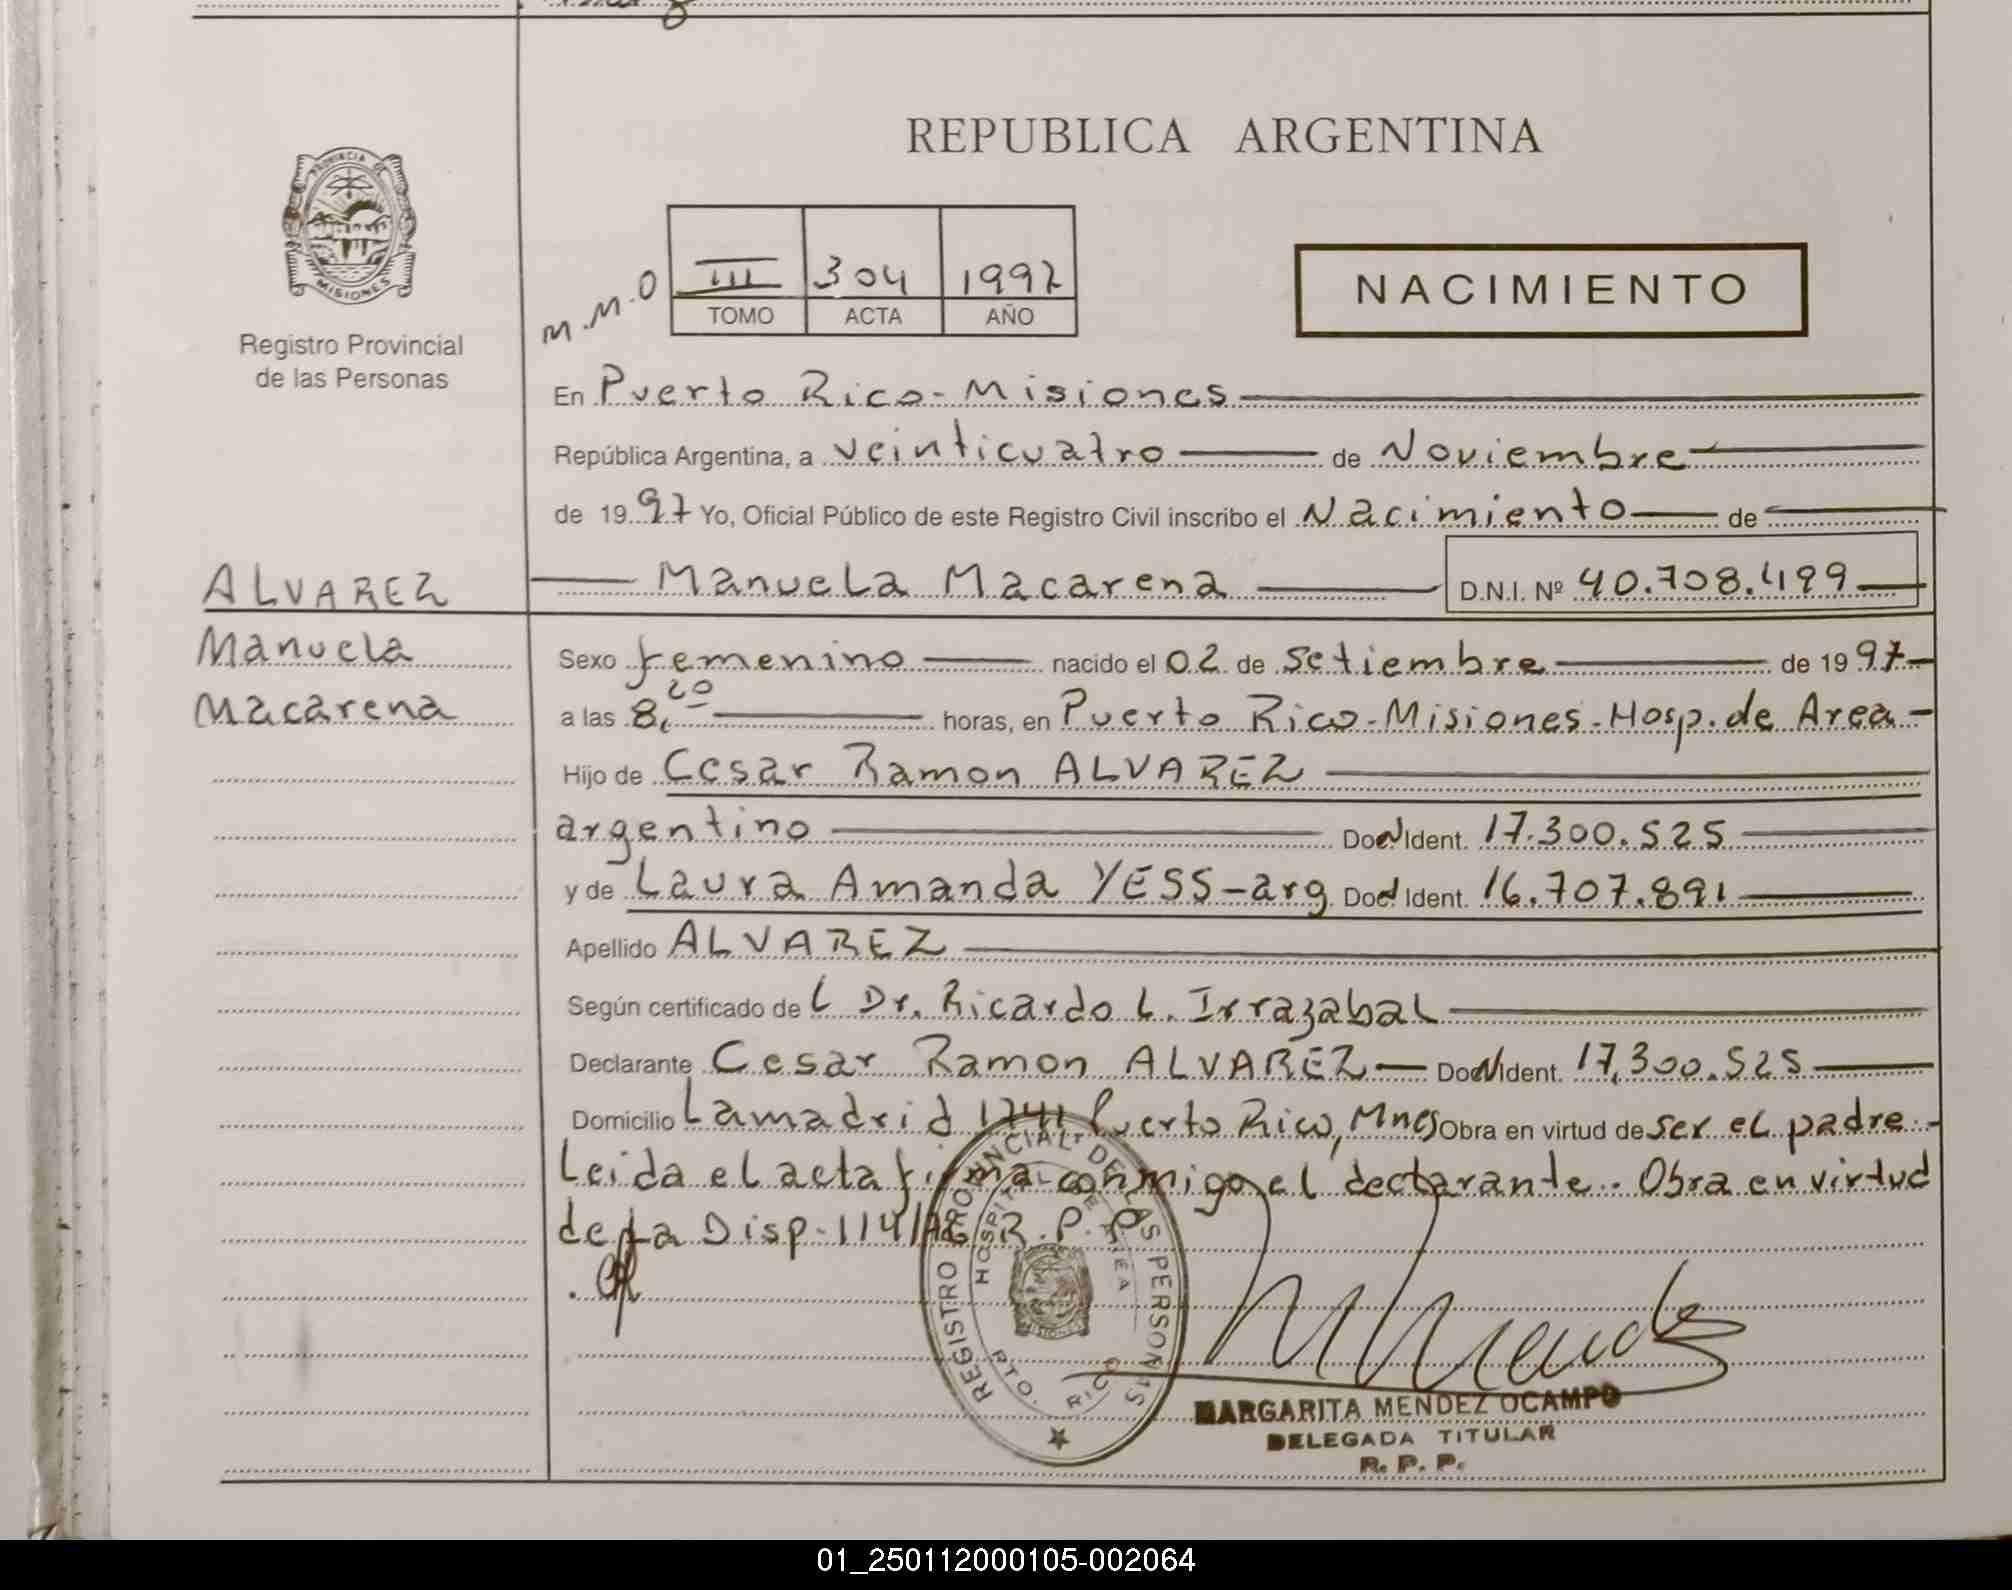 REPUBLICA ARGENTINA
PROVINCIA DE
MISIONES
Registro Provincial
de las Personas
M.M.O
III 304 1997
TOMO ACTA AÑO
NACIMIENTO
En Puerto Rico - Misiones
República Argentina, a veinticuatro de Noviembre
de 1997 Yo, Oficial Público de este Registro Civil inscribo el Nacimiento de
Manuela Macarena D.N.I. Nº 40.708.499
ALVAREZ
Manuela
Macarena
Sexo femenino nacido el 02 de Setiembre de 1997
a las 8,20 horas, en Puerto Rico - Misiones - Hosp. de Area -
Hijo de Cesar Ramon ALVAREZ
argentino DocN Ident. 17.300.525
y de Laura Amanda YESS - arg. Doc Ident. 16.707.891
Apellido ALVAREZ
Según certificado del Dr. Ricardo L. Irrazabal
Declarante Cesar Ramon ALVAREZ DocN Ident. 17.300.525
Domicilio Lamadrid 1741 Puerto Rico, Mnes Obra en virtud de ser el padre.-
Leida el acta firma conmigo el declarante. Obra en virtud
de la Disp. 114/ R.P.P
REGISTRO PROVINCIAL DE LAS PERSONAS
HOSPITAL DE AREA
PTO RICO
MISIONES
MARGARITA MENDEZ OCAMPO
DELEGADA TITULAR
R. P. P.
01_250112000105-002064